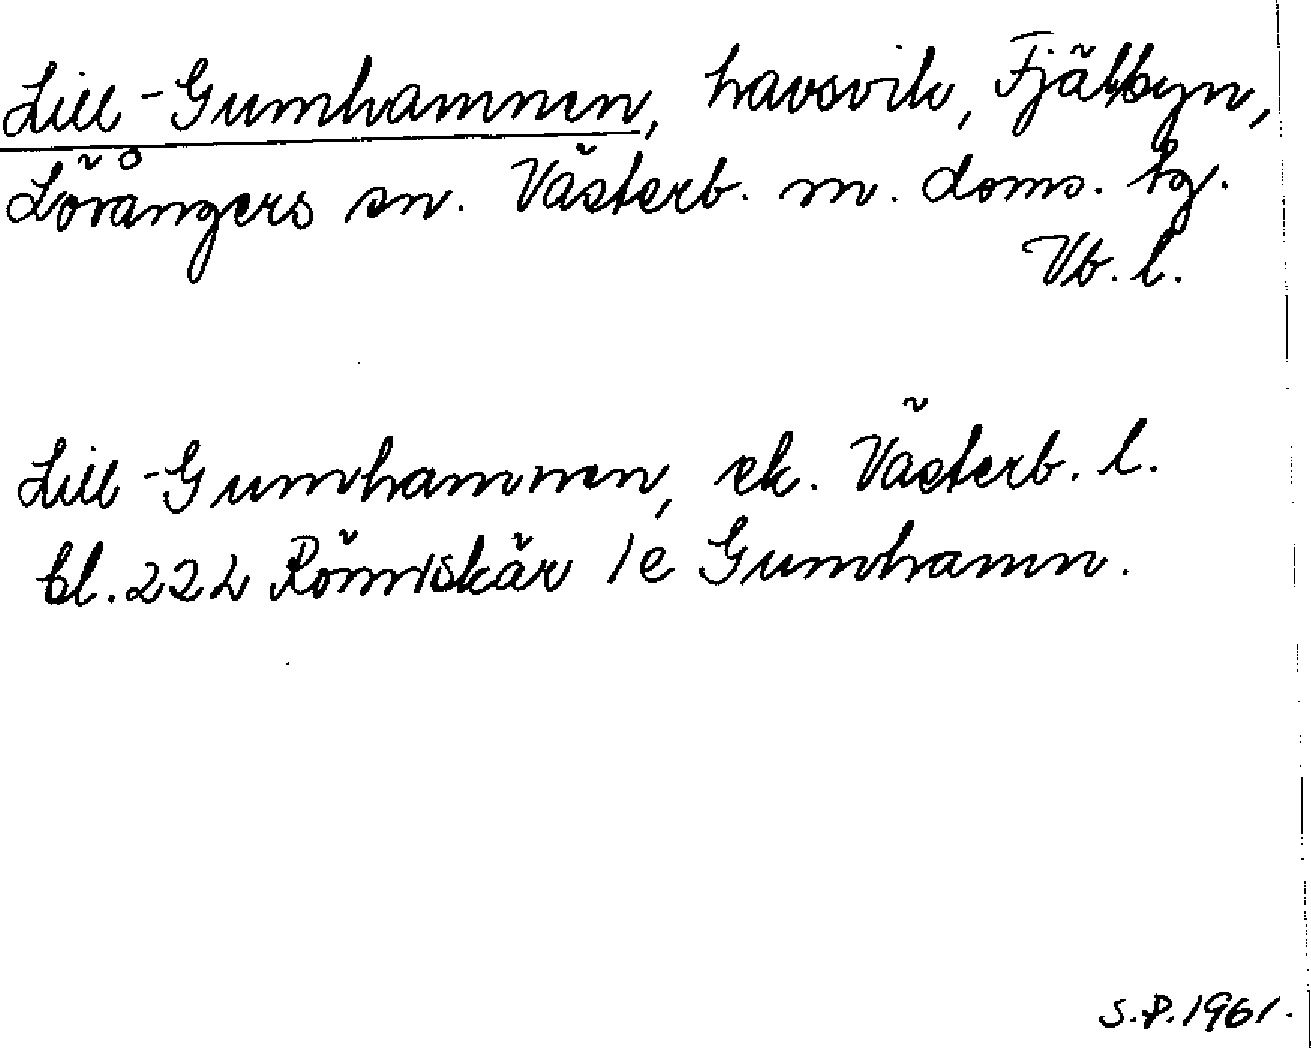 Lill-Gumhamnen, havsvik, Fjälbyn,
Lövångers sn. Västerb. m. doms. tg.
Vb. l.
Lill-Gumhamnen, ek. Västerb. l.
bl. 222 Rönnskär 1e Gumhamn.
S.P. 1961.